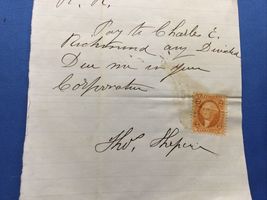 R. R.
Pay to Charles E.
Richmond any Divided
Due me in your
Corporation
Tho. Shepin